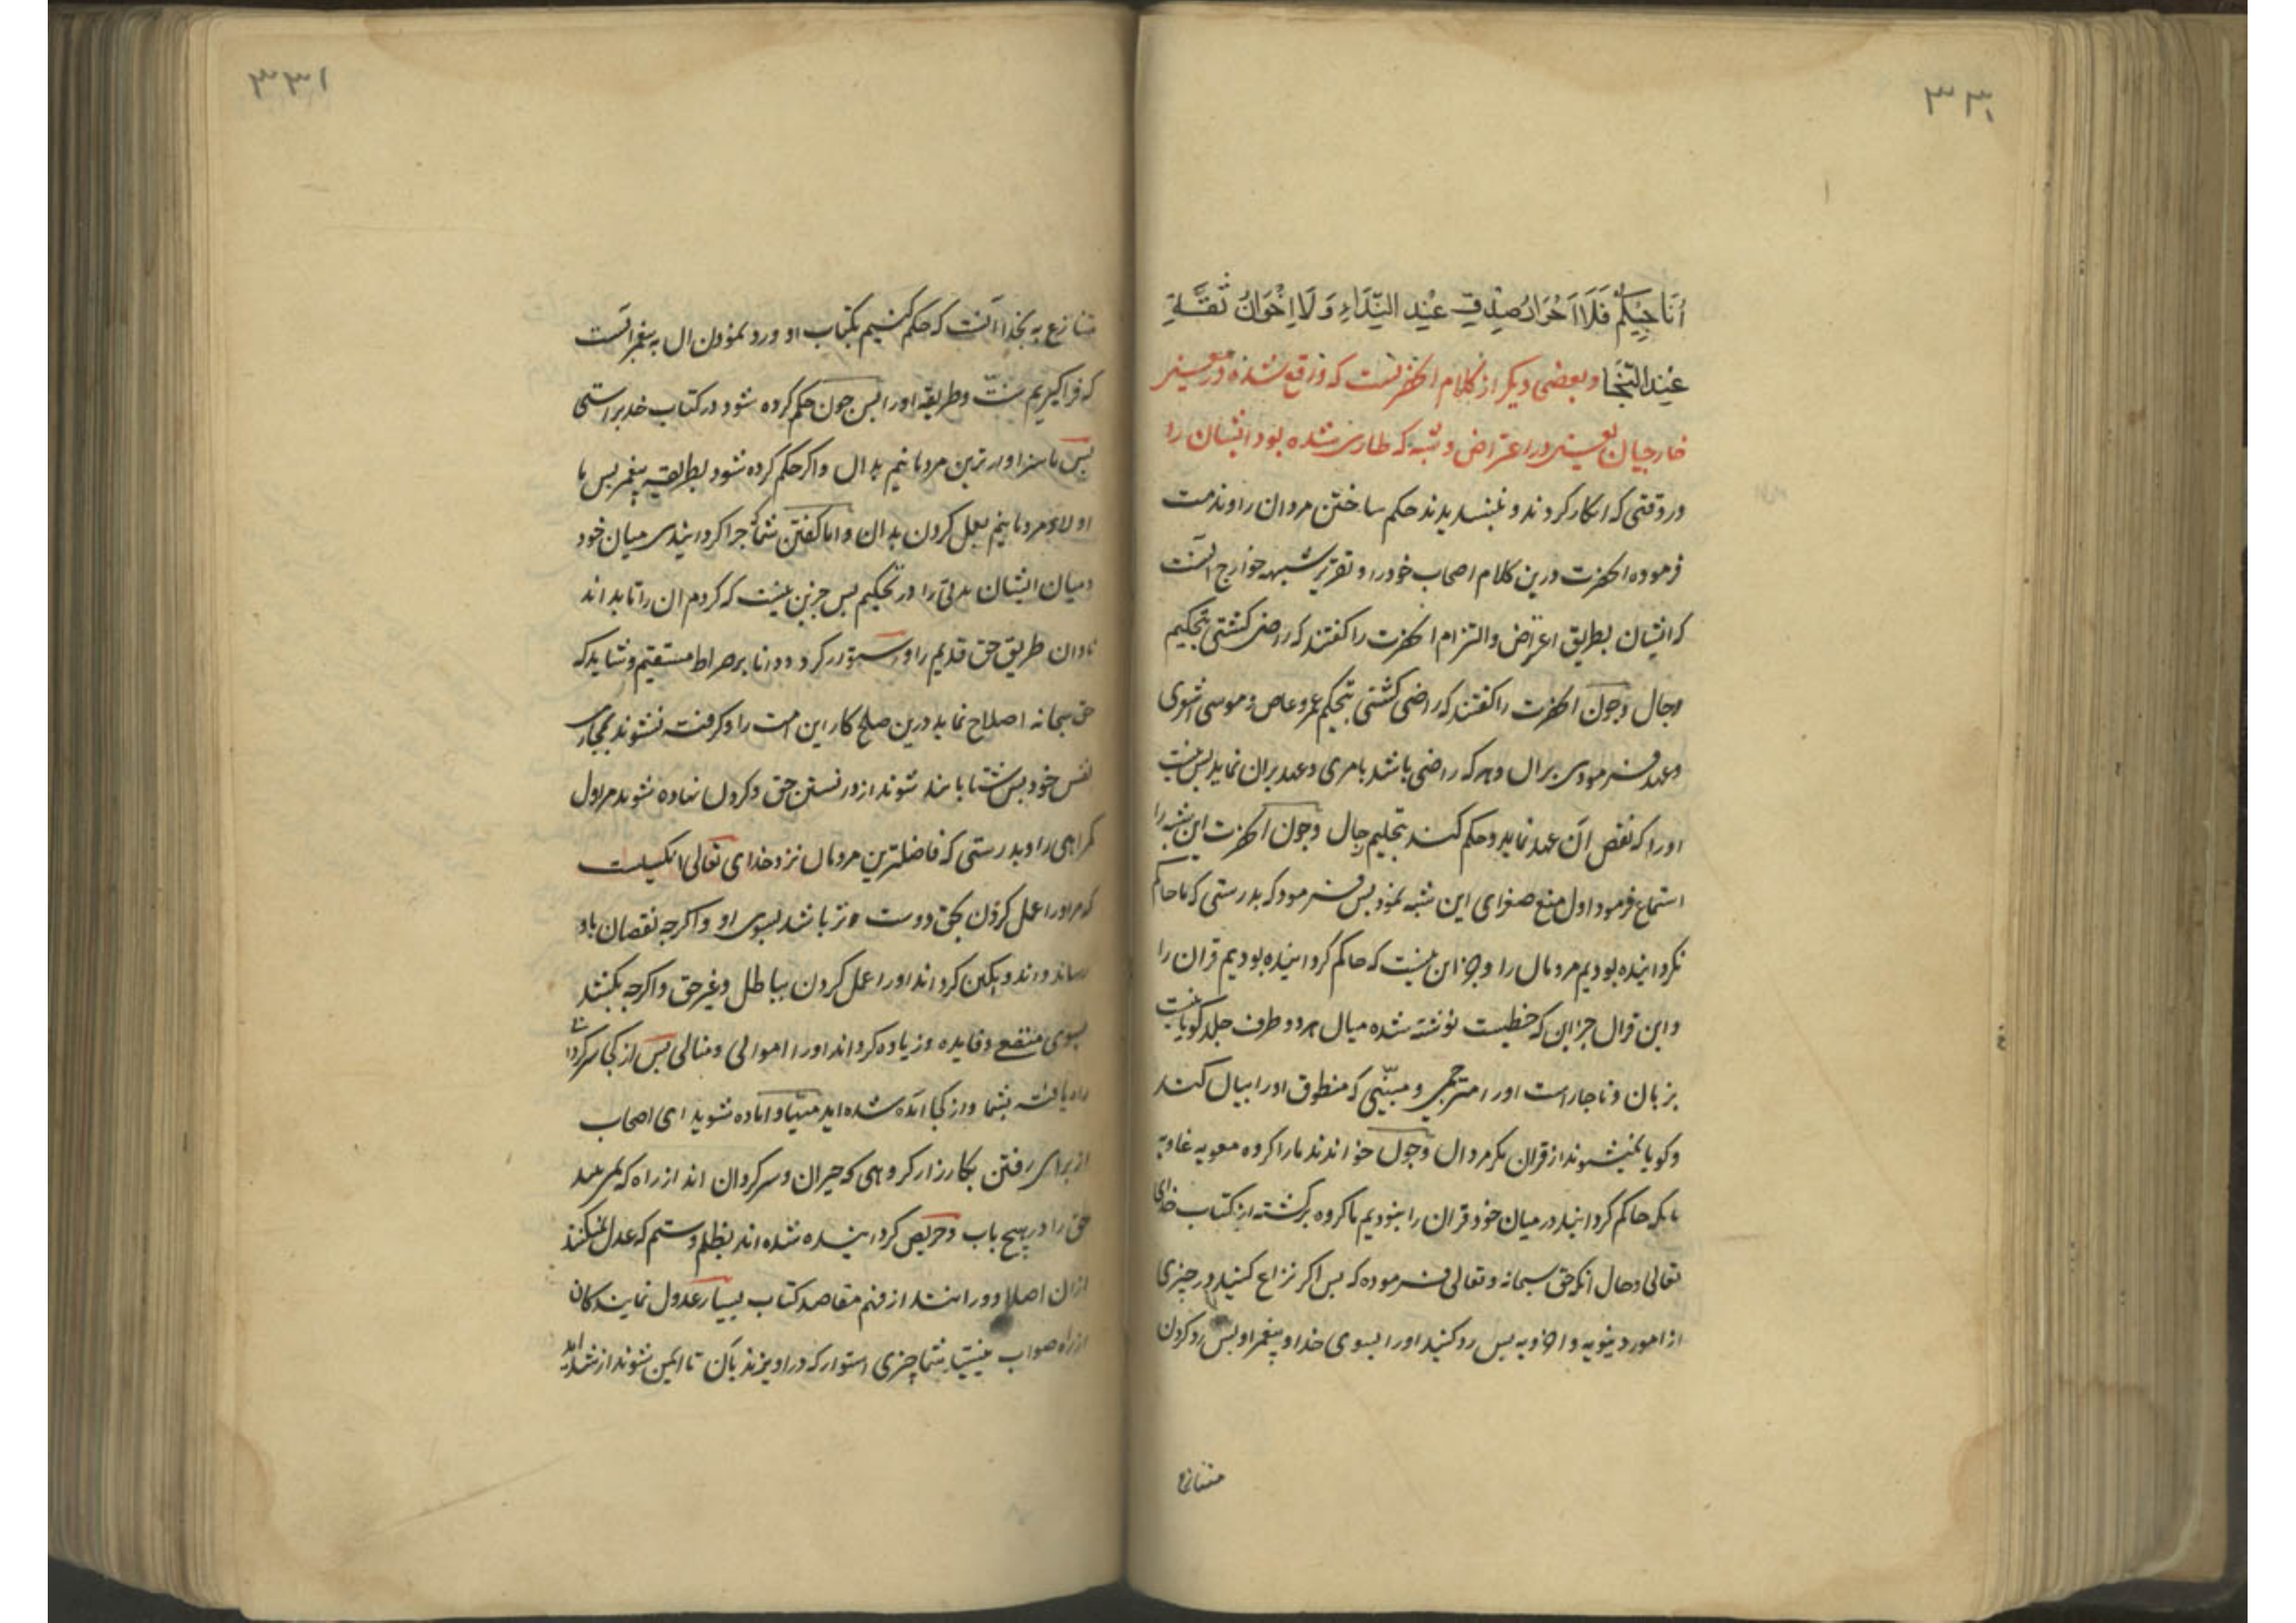 ٣٣٠
أُنَاجِيكُمْ فَلَا اَحْرَارُ صِدْقٍ عِنْدَ النِّدَاءِ وَلَا اِخْوَانُ ثِقَةٍ
عِنْدَ النَّجَا و بعضی دیکر از کلام انحضرتست که واقع شده در معنی
خارجیان یعنی در اعتراض و شبه که طاری شده بود ایشان را
در وقتی که انکار کردند و نپسندیدند حکم ساختن مردان را و ندمت
فرموده انحضرت درین کلام اصحاب خود را و تقریر شبهه خوارج انست
که ایشان بطریق اعتراض والتزام انحضرت را کفتند که راضی کشتی بتحکیم
رجال و چون انحضرت را کفتند که راضی کشتی بتحکیم عمرو عاص و موسی اشعری
و عهد فرمودی بران و هر که راضی باشد بامری و عهد بران نماید پس نیست
او را که نقض آن عهد نماید و حکم کند بتحکیم رجال و چون انحضرت این شبه را
استماع فرمود اول منع صغرای این شبه نمود پس فرمود که بدرستی که ما حاکم
نکردانیده بودیم مردمان را و جز این نیست که حاکم کردانیده بودیم قران را
و این قران جز این که خطیست نوشته شده میان هر دو طرف جلد کویا نیست
بزبان و ناچار است او را مترجمی و مبیّنی که منطوق او را بیان کند
و کویا نمیشوند از قران مکر مردان و چون خواندند ما را کروه معویه غاویه
بانکه حاکم کردانید در میان خود قران را نبودیم ما کروه برکشته از کتاب خدای
تعالی و حال انکه حق سبحانه و تعالی فرموده که پس اکر نزاع کنید در چیزی
از امور دینویه و اخرویه پس رد کنید او را بسوی خدا و پیغمبر او پس رد کردن
متنازع
٣٣١
متنازع به بخدا انست که حکم کنیم بکتاب او و رد نمودن ان به پیغمبر انست
که فرا کیریم سنت و طریقه او را پس چون حکم کرده شود در کتاب خدا براستی
پس ما سزاوارترین مردمانیم بدان و اکر حکم کرده شود بطریقه پیغمبر پس ما
اولای مردمانیم بعمل کردن بدان و اما کفتن شما که چرا کردانیدی میان خود
و میان ایشان مدتی را در تحکیم پس جز این نیست که کردم ان را تا بداند
نادان طریق حق قدیم را و استوار کردد دانا بر صراط مستقیم و شاید که
حق سبحانه اصلاح نماید درین صلح کار این امت را و کرفته نشوند بمجاری
نفس خود پس شتابانند شوند از دانستن حق و کردن نهاده شوند مر اول
کمراهی را و بدرستی که فاضلترین مردمان نزد خدای تعالی انکسیست
که مر او را عمل کردن بحق دوست تر باشد بسوی او و اکرچه نقصان باو
رساند و اندوهکین کرداند او را عمل کردن بباطل و غیر حق و اکرچه بکشد
بسوی منفعت و فایده و زیاده کرداند او را اموالی و منالی پس از کجا سرکردانی
راه یافته بشما و از کجا آمده شده اید مهیا و آماده شوید ای اصحاب
از برای رفتن بکارزار کروهی که حیران و سرکردان اند از راه که نمی بینند
حق را در هیچ باب و حریص کردانیده شده اند بظلم و ستم که عدل نمیکنند
ازان اصلا و دورانند از فهم مقاصد کتاب بسیار عدول نمایندکان
از راه صواب نیستید شما چیزی استوار که در اویزند بآن تا ایمن شوند از شداید